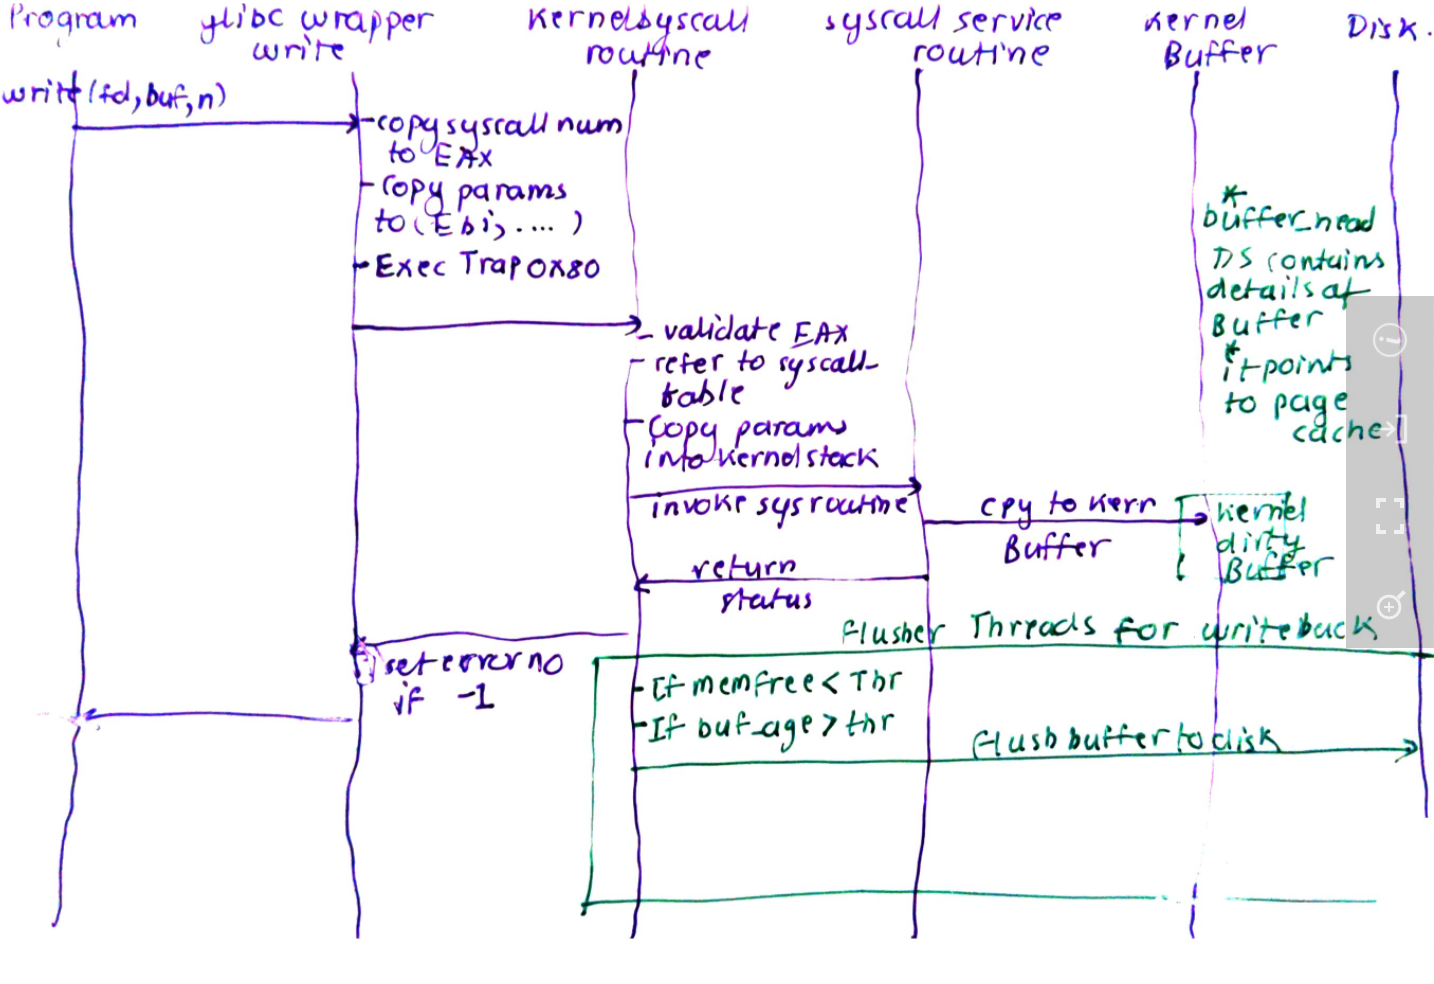 Program
glibc wrapper
write
Kernel syscall
routine
syscall service
routine
kernel
Buffer
Disk.
write(fd,buf,n)
-copy syscall num
to EAX
-Copy params
to(Ebi,....)
-Exec Trap 0x80
- validate EAX
- refer to syscall
table
-Copy params
into kernel stack
invoke sys routine
cpy to kern
Buffer
kernel
dirty
Buffer
return
status
*
buffer_head
DS contains
details of
Buffer
*
it points
to page
cache
set errorno
if -1
flusher Threads for writeback
-If memfree < Thr
-If buf_age > thr
flush buffer to disk